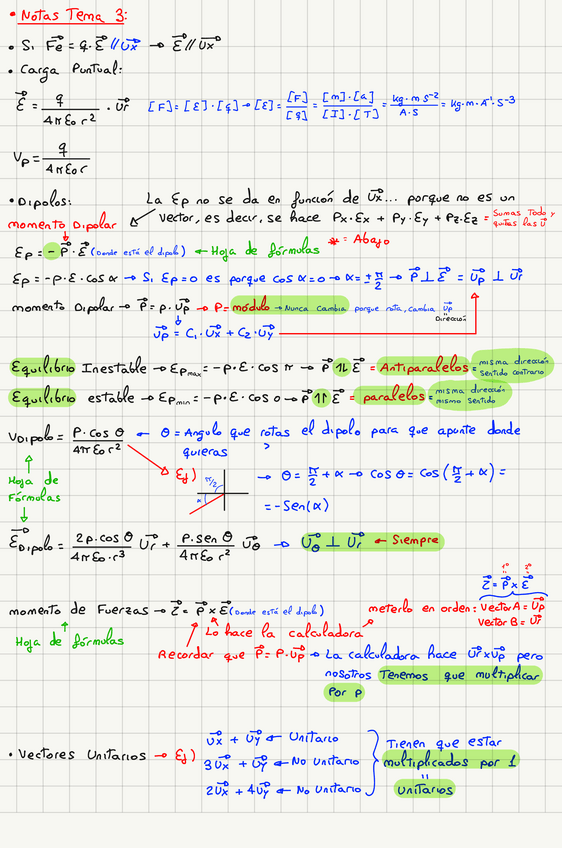 • Notas Tema 3:
• Si F⃗e = q · E⃗ // U⃗x → E⃗ // U⃗x
• Carga Puntual:
E⃗ = q / 4πε₀ r² · U⃗r    [F] = [E] · [q] → [E] = [F] / [q] = [m] · [a] / [I] · [T] = kg · m s⁻² / A · s = kg · m · A⁻¹ · s⁻³
Vp = q / 4πε₀ r
• Dipolos: La Ep no se da en función de U⃗x... porque no es un
vector, es decir, se hace Px·Ex + Py·Ey + Pz·Ez = Sumas Todo y quitas las U⃗
momento Dipolar
* = Abajo
Ep = - P⃗ · E⃗ (Donde está el dipolo) ← Hoja de fórmulas
Ep = -p · E · cos α → Si Ep = 0 es porque cos α = 0 → α = ± π/2 → P⃗ ⊥ E⃗ = U⃗p ⊥ U⃗r
momento Dipolar → P⃗ = p · U⃗p → P = módulo → Nunca cambia porque rota, cambia U⃗p
Dirección
U⃗p = C₁ · U⃗x + C₂ · U⃗y
Equilibrio Inestable → Ep max = -p · E · cos π → P⃗ ⇅ E⃗ = Antiparalelos = misma dirección sentido contrario
Equilibrio estable → Ep min = -p · E · cos 0 → P⃗ ⇈ E⃗ = paralelos = misma dirección mismo sentido
V Dipolo = P · cos θ / 4πε₀ r² ← θ = Angulo que rotas el dipolo para que apunte donde
quieras
Hoja de Fórmulas
Ej) π/2 α → θ = π/2 + α → cos θ = cos (π/2 + α) =
= -Sen(α)
E⃗ Dipolo = 2p · cos θ / 4πε₀ · r³ U⃗r + p · sen θ / 4πε₀ r² U⃗θ → U⃗θ ⊥ U⃗r ← Siempre
1º 2º
τ⃗ = P⃗ x E⃗
momento de Fuerzas → τ⃗ = P⃗ x E⃗ (Donde está el dipolo) meterlo en orden: Vector A = U⃗p
Vector B = U⃗r
Hoja de fórmulas
Lo hace la calculadora
Recordar que P⃗ = P · U⃗p → La calculadora hace U⃗r x U⃗p pero
nosotros Tenemos que multiplicar
Por p
• Vectores Unitarios → Ej) U⃗x + U⃗y ← Unitario
3U⃗x + U⃗y ← No Unitario
2U⃗x + 4U⃗y ← No Unitario
Tienen que estar
multiplicados por 1
"
Unitarios